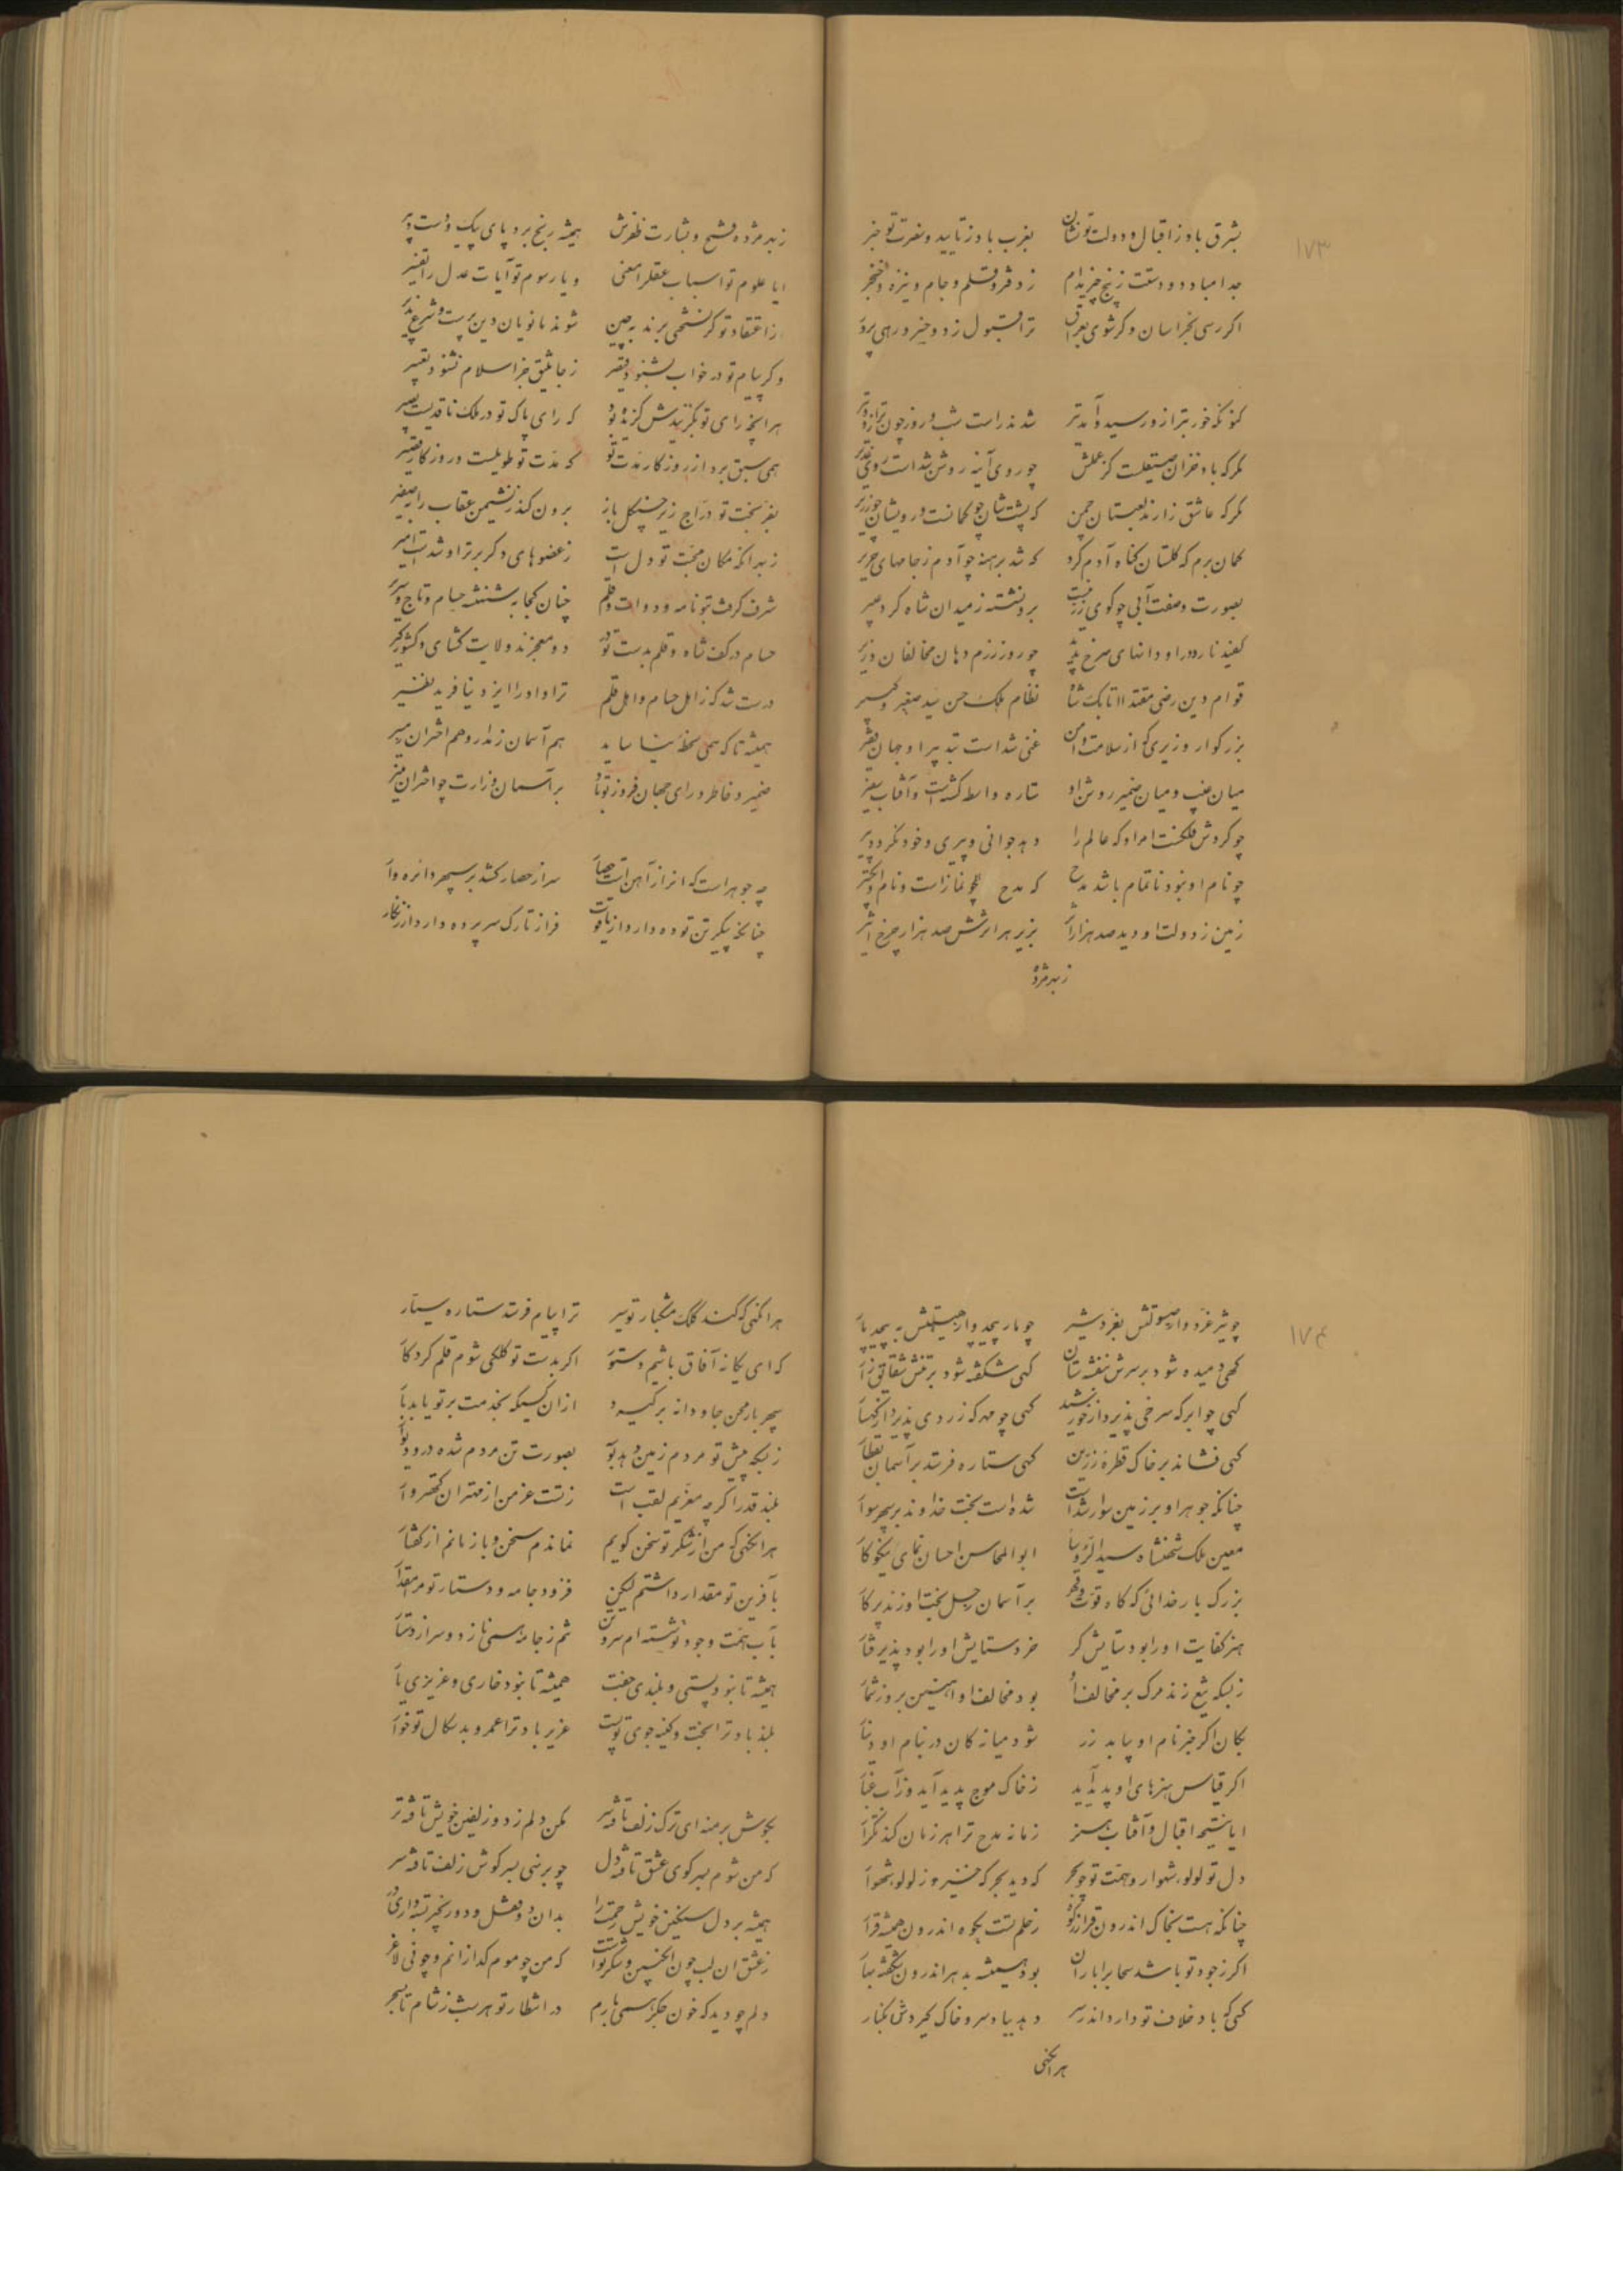 ۱۷۳
بشرق باد ز اقبال و دولت تو نشان بغرب باد ز تایید و نصرت تو خبر
جدا مباد دو دستت ز پنج چیز مدام ز دفتر و قلم و جام و نیزه و خنجر
اگر رسی بخراسان و گر شوی بعراق ترا قبول ز دو خسرو رهی پرور
کنونکه خور بترازو رسید و آمد تیر شدند راست شب و روز چون ترازو و تیر
مگر که باد خزان صیقلست کز عملش چو روی آینه روشن شداست روی غدیر
مگر که عاشق زارند لعبتان چمن که پشت شان چو کمانست و رویشان چو زریر
گمان برم که گلستان گناه آدم کرد که شد برهنه چو آدم ز جامهای حریر
بصورت و صفت آبی چو گوی زرینست برو نشسته ز میدان شاه گرد عبیر
کفیده نار و در او دانهای سرخ پدید چو روز رزم دهان مخالفان وزیر
قوام دین رضی مقتدا اتابک شاه نظام ملک حسن سید صغیر و کبیر
بزرگوار وزیری که از سلامت و امن غنی شداست بتدبیر او جهان فقیر
میان غیب و میان ضمیر روشن او ستاره واسطه گشتست و آفتاب سفیر
چو گردش فلکست امر او که عالم را دهد جوانی و پیری و خود نگردد پیر
چو نام او نبود ناتمام باشد مدح که مدح همچو نمازاست و نام او تکبیر
زمین ز دولت او دید صد هزار آثار بزیر هر اثرش صد هزار چرخ اثیر
زبهر مژده
زبهر مژده فتح و بشارت ظفرش همیشه رنج برد پای پیک و دست دبیر
ایا علوم تو اسباب عقل را معنی و یا رسوم تو آیات عدل را تفسیر
ز اعتقاد تو گر نسختی برند به چین شوند مانویان دین پرست و شرع پذیر
و گر پیام تو در خواب بشنود قیصر ز جاثلیق جز اسلام نشنود تعبیر
هر انچه رای تو بگزیدش گزیده بود که رای پاک تو در ملک ناقدیست بصیر
همی سبق برد از روزگار مدت تو که مدت تو طویلست و روزگار قصیر
بفر بخت تو دراج زیر چنگل باز برون کند ز نشیمن عقاب را بصفیر
زبهر انکه مکان محبت تو دل است ز عضوهای دگر برتر او شدست امیر
شرف گرفت بتو نامه و دوات و قلم چنان کجا به شهنشه حسام و تاج و سریر
حسام در کف شاه و قلم بدست تو در دو معجزند ولایت گشای و کشور گیر
درست شد که ز اهل حسام و اهل قلم ترا و او را ایزد نیافرید نظیر
همیشه تا که همی سخط بنا ساید هم آسمان ز مدار و هم اختران ز مسیر
ضمیر و خاطر و رای جهان فروز تو باد بر آسمان وزارت چو اختران منیر
چه جوهراست که انرا ز آهن است حصار سر از حصار کشد بر سپهر دایره وار
چنانچه پیکر تن توده دارد از یاقوت فراز تارک سر پرده دارد از زنگار
۱۷۴
چو شیر غرد و از صولتش بغرد شیر چو مار پیچد و از هیبتش به پیچد مار
گهی دمیده شود بر سرش بنفشه ستان گهی شکفته شود بر تنش شقایق زار
گهی چو ابر که سرخی پذیرد از خورشید گهی چو مهر که زردی پذیرد از کهسار
گهی فشاند بر خاک قطره زرین گهی ستاره فرستد بر آسمان بقطار
چنانکه جوهر او بر زمین سوار شداست شده است بخت خداوند بر سپهر سوار
معین ملک شهنشاه سید الرؤسا ابو المحاسن احسان نمای نیکوکار
بزرگ بار خدائی که گاه قوت و قهر بر آسمان زحل بخت او زند پرگار
هنر کفایت او را بود ستایش گر خرد ستایش او را بود پذیرفتار
زبسکه تیغ زند مرگ بر مخالف او بود مخالف او اهنین بروز شمار
بکان اگر خبر نام او بیابد زر شود میانه کان در بنام او دینار
اگر قیاس هنرهای او پدید آید ز خاک موج پدید آید و ز آب غبار
ایا نتیجه اقبال و آفتاب هنر زمانه مدح ترا هر زمان کند تکرار
دل تو لولو شهوار و همت تو چو بحر که دید بحر که خیزد ز لولو شهوار
چنانکه هست بخاک اندرون قرار ز کوه ز حلم تست بکوه اندرون همیشه قرار
اگر ز جود تو باشد سحاب را باران بود همیشه بدهر اندرون شکفته بهار
کسی که باد خلاف تو دارد اندر سر دهد بباد سر و خاک گیردش بکنار
هر انکهی
هر انکهی که کند کلک مشکبار تو سیر ترا پیام فرستد ستاره سیار
که ای یگانه آفاق باشم دستور اگر بدست تو کلکی شوم قلم کردار
سپهر بار محن جاودانه برگیرد از آن کسیکه بخدمت بر تو یابد بار
زبسکه پیش تو مردم زمین دهد بوسه بصورت تن مردم شده در و دیوار
بلند قدرا گر چه معزیم لقب است ز تست عز من از مهتران کهتروار
هر انکهی که من از شکر تو سخن گویم نماندم سخن و باز مانم از گفتار
بآفرین تو مقدار داشتم لیکن فزود جامه و دستار تو مرا مقدار
بآب همت وجود تو شسته ام سر و تن تنم ز جامه همی نازد و سر از دستار
همیشه تا نبود پستی و بلندی جفت همیشه تا نبود خاری و عزیزی یار
بلند باد ترا بخت و کینه جوی تو پست عزیز باد ترا عمر و بدسگال تو خوار
بجوش بر منه ای ترک زلف تافته سر مکن دلم ز دو زلفین خویش تافته تر
که من شوم بسر کوی عشق تافته دل چو بر نهی بسر گوش زلف تافته سر
همیشه بر دل سنگین خویش
ز عشق ان لب چون انگبین و شکر تست که من چو موم گدازانم و چو نی لاغر
دلم چو دید که خون جگر همی بارم در انتظار تو هر شب ز شام تا بسحر